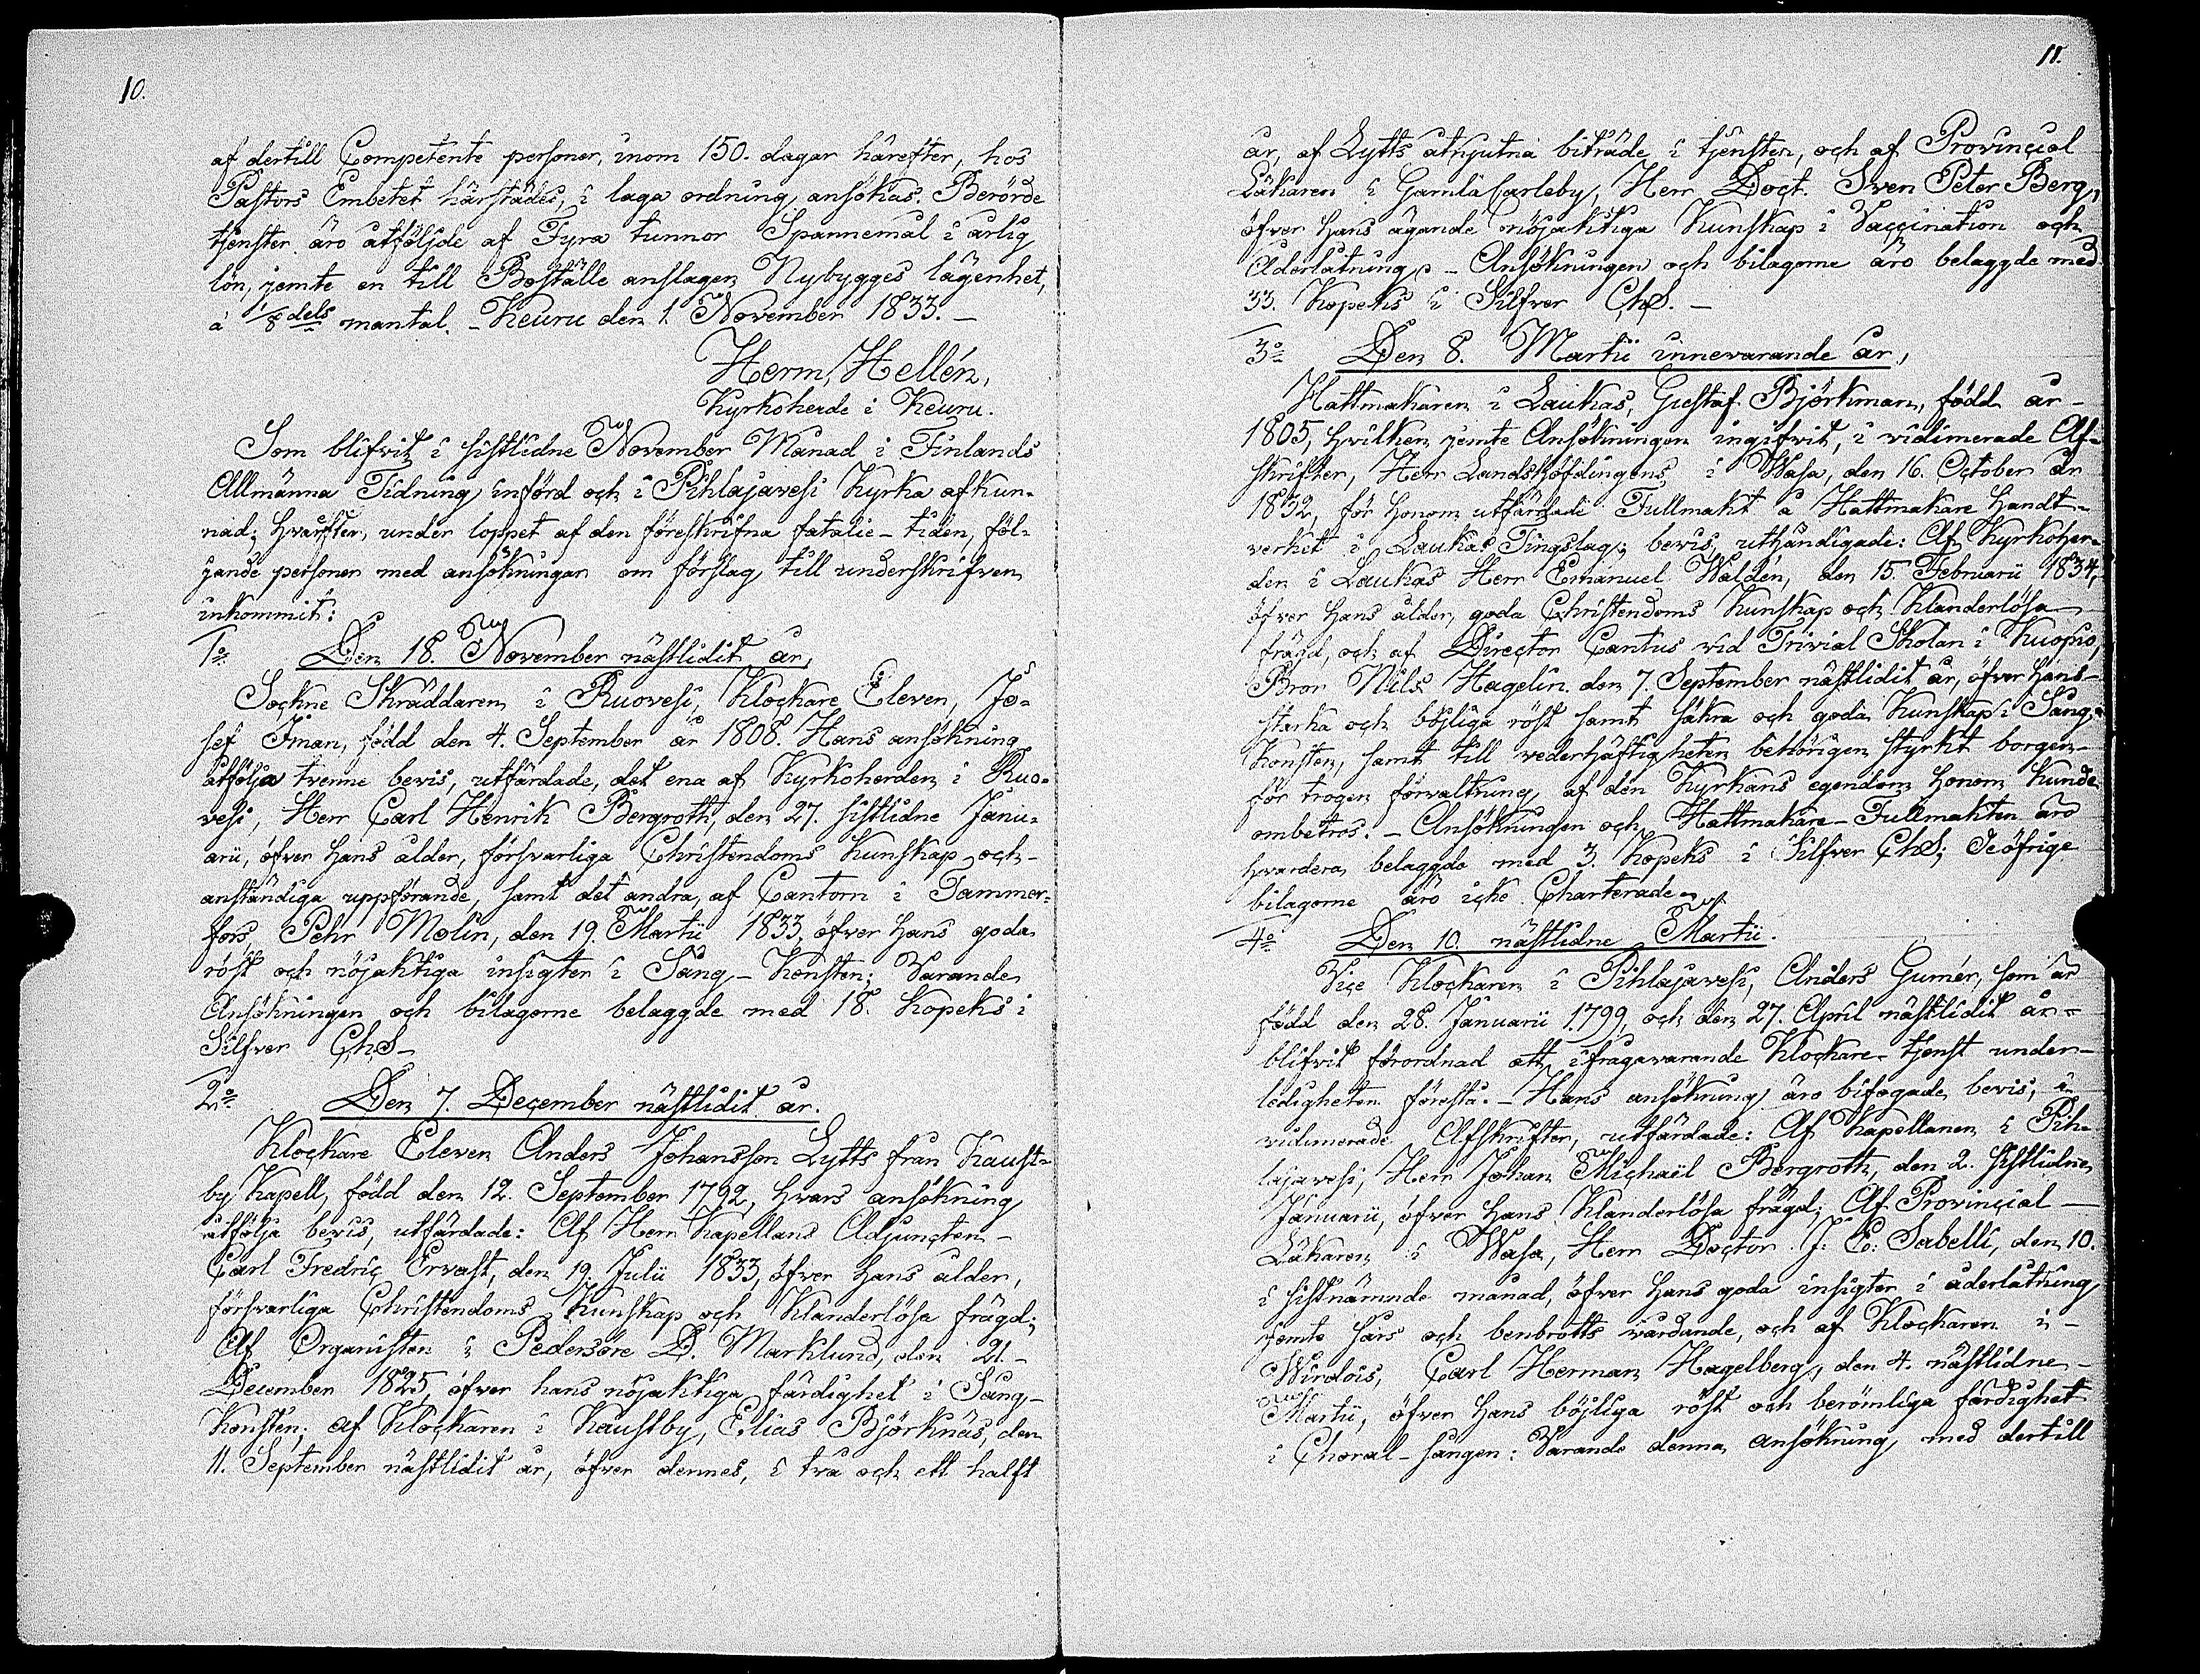 10.
af dertill Competente personer, inom 150. dagar härefter, hos
Pastors Embetet härstädes, i laga ordning, ansökas. Berörde
tjenster äro åtföljde af Fyra tunnor Spannemål i årlig
lön, jemte en till Boställe anslagen Nybygges lägenhet,
å 1/8 dels mantal. - Keuru den 1. November 1833. -
Herm. Hellén,
Kyrkoherde i Keuru.
Som blifvit i sistlidne November Månad i Finlands
Allmänna Tidning införd och i Pihlajavesi Kyrka afkun-
nad; hvarefter, under loppet af den föreskrifna fatalie-tiden, föl-
jande personer med ansökningar om förslag till underskrifven
inkommit:
1o Den 18. November nästlidit år,
Sockne Skräddaren i Ruovesi, Klockare Eleven, Jo-
sef Iman, född den 4. September år 1808. Hans ansökning
åtfölja tvenne bevis, utfärdade, det ena af Kyrkoherden i Ruo-
vesi, Herr Carl Henrik Bergroth, den 27. sistlidne Janu-
arii, öfver hans ålder, försvarliga Christendoms Kunskap och -
anständiga uppförande, samt det andra, af Cantorn i Tammer-
fors, Pehr Molin, den 19. Martii 1833, öfver hans goda
röst och nöjaktiga insigter i Sång-Konsten; Varande
Ansökningen och bilagorne belaggde med 18. Kopeks i
Silfver ChS -
2o Den 7. December nästlidit år.
Klockare Eleven Anders Johansson Lytts från Kaust-
by Kapell, född den 12. September 1792, hvars ansökning
åtfölja bevis, utfärdade: Af Herr Kapellans Adjuncten -
Carl Fredric Ervast, den 19. Julii 1833, öfver hans ålder,
försvarliga Christendoms Kunskap och Klanderlösa frägd;
Af Organisten i Pedersöre D. Marklund, den 21. -
December 1825, öfver hans nöjaktiga färdighet i Sång-
Konsten; af Klockaren i Kaustby, Elias Björknäs, den
11. September nästlidit år, öfver dennes, i två och ett halft
11.
år, af Lytts åtnjutna biträde i tjensten, och af Provincial
Läkaren i Gamla Carleby, Herr Doct. Sven Peter Berg,
öfver hans ägande nöjaktiga Kunskap i Vaccination och
Åderlåtning. - Ansökningen och bilagorne äro belaggde med
33. Kopeks i Silfver ChS. -
3o Den 8. Martii innevarande år,
Hattmakaren i Laukas, Gustaf Björkman, född år -
1805, hvilken jemte Ansökningen ingifvit, i vidimerade Af-
skrifter, Herr Landshöfdingens, i Wasa, den 16. October år
1832, för honom utfärdade Fullmakt å Hattmakare Handt-
verket i Laukas Tingslag; bevis, uthändigade: Af Kyrkoher-
den i Laukas Herr Emanuel Waldén, den 15. Februarii 1834,
öfver hans ålder, goda Christendoms Kunskap och Klanderlösa
frägd, och af Director Cantus vid Trivial Skolan i Kuopio,
Bror Nils Hagelin den 7. September nästlidit år, öfver hans -
starka och böjliga röst samt säkra och goda Kunskap i Sång-
Konsten, samt till vederhäftigheten behörigen styrkt borgen -
för trogen förvaltning af den Kyrkans egendom honom kunde
ombetros. - Ansökningen och Hattmakare-Fullmakten äro
hvardera belaggde med 3. Kopeks i Silfver ChS; De öfrige
bilagorne äro icke Charterade.
4o Den 10. nästlidne Martii.
Vice Klockaren i Pihlajavesi, Anders Gumér, som är
född den 28. Januarii 1799, och den 27. April nästlidit år -
blifvit förordnad att ifrågavarande Klockare-tjenst under -
ledigheten förestå. - Hans ansökning äro bifogade bevis, i
vidimerade Afskrifter, utfärdade: Af Kapellanen i Pih-
lajavesi, Herr Johan Michaël Bergroth, den 2. sistlidne
Januarii, öfver hans Klanderlösa frägd; Af Provincial -
Läkaren i Wasa, Herr Doctor J. E. Sabelli, den 10.
i sistnämnde månad, öfver hans goda insigter i åderlåtning
jemte sårs och benbrotts vårdande, och af Klockaren i -
Wirdois, Carl Herman Hagelberg, den 4. nästlidne -
Martii, öfver hans böjliga röst och berömliga färdighet
i Choral-sången: Varande denna ansökning, med dertill